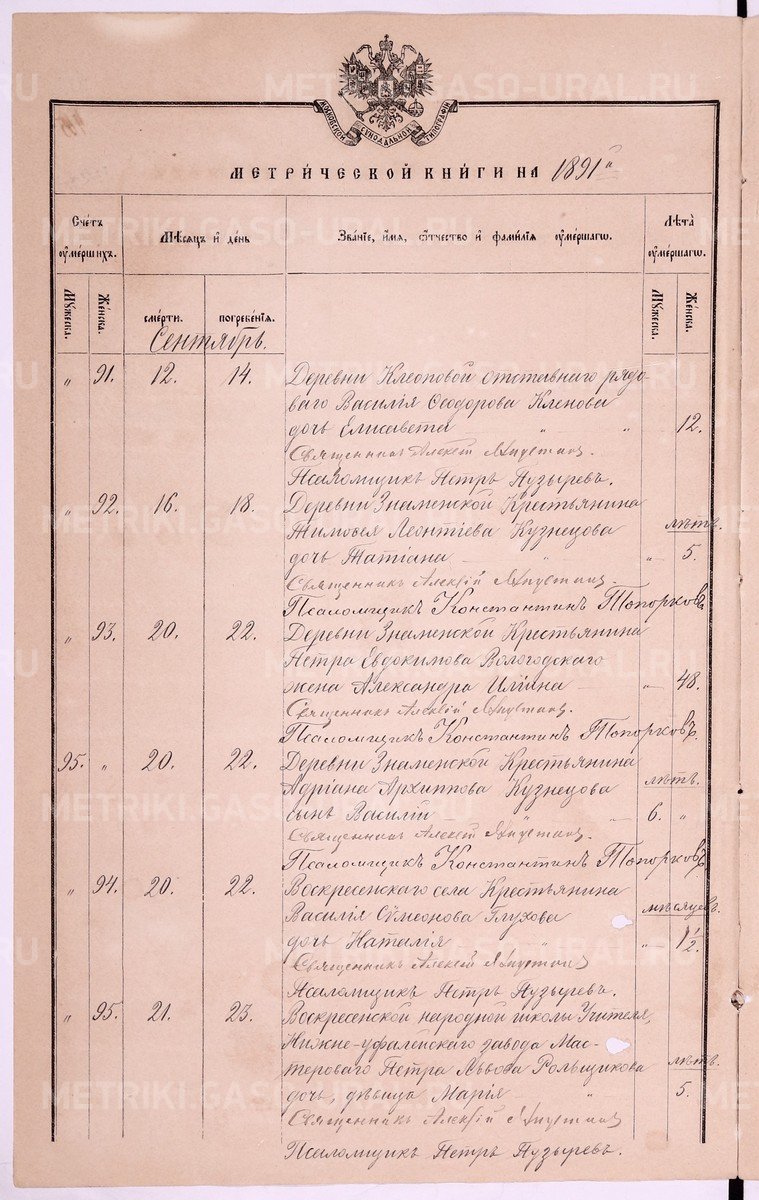 МОСКОВСКОЙ СѴНОДАЛЬНОЙ ТИПОГРАФІИ
МЕТРИ́ЧЕСКОЙ КНИ́ГИ НА 1891 г
Сче́тъ ᲂу҆ме́ршихъ.
Мѣ́сяцъ и҆ де́нь
Зва́нїе, и҆́мѧ, ѻ҆́тчество и҆ фами́лїѧ ᲂу҆ме́ршагѡ.
Лѣ́та ᲂу҆ме́ршагѡ.
Мꙋ́жеска. Же́нска. сме́рти. погребе́нїѧ. Мꙋ́жеска. Же́нска.
Сентябрь.
" 91. 12. 14. Деревни Клеоповой отставнаго рядо-
ваго Василія Ѳеодорова Кленова
дочь Елисавета " " 12.
Священникъ Алексій
Псаломщикъ Петръ Пузыревъ.
" 92. 16. 18. Деревни Знаменской Крестьянина
Тимоѳея Леонтіева Кузнецова лѣтъ.
дочь Татіана " " 5.
Священникъ Алексій
Псаломщикъ Константинъ Топорковъ
" 93. 20. 22. Деревни Знаменской Крестьянина
Петра Евдокимова Вологодскаго
жена Александра Иліина " 48.
Священникъ Алексій
Псаломщикъ Константинъ Топорковъ.
95. " 20. 22. Деревни Знаменской Крестьянина
Адріана Архиппова Кузнецова лѣтъ.
сынъ Василій " 6. "
Священникъ Алексій
Псаломщикъ Константинъ Топорковъ
" 94. 20. 22. Воскресенскаго села Крестьянина
Василія Сѵмеонова Глухова мѣсяцевъ.
дочь Наталія " " 1½.
Священникъ Алексій
Псаломщикъ Петръ Пузыревъ.
" 95. 21. 23. Воскресенской народной школы Учителя,
Нижне-уфалейскаго завода Мас-
тероваго Петра Львова Рольщикова лѣтъ.
дочь, дѣвица Марія " 5.
Священникъ Алексій
Псаломщикъ Петръ Пузыревъ.
METRIKI.GASO-URAL.RU